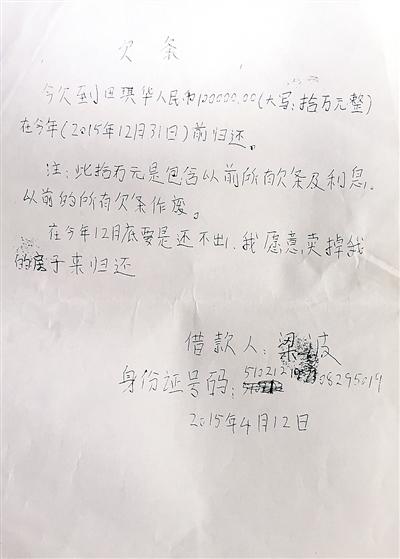 欠条
今欠到田琪华人民币100000.00(大写:拾万元整)
在今年(2015年12月31日)前归还。
注:此拾万元是包含以前所有欠条及利息,
以前的所有欠条作废。
在今年12月底要是还不出,我愿意卖掉我
的房子来归还
借款人:梁波
身份证号码:51021219 08295019
2015年4月12日